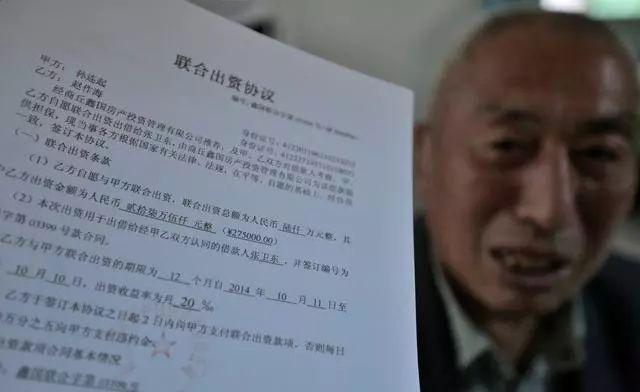 联合出资协议
编号:鑫国联合字第
甲方: 孙连起
乙方: 赵作海
身份证号:
身份证号:
经商丘鑫国房产投资管理有限公司推荐,及甲、乙双方对借款人考察、审
乙方自愿联合出资出借给张卫东,由商丘鑫国房产投资管理有限公司为该借款提
供担保,现当事各方根据国家有关法律、法规,在平等、自愿的基础上,经协商
一致,签订本协议。
(一)联合出资条款
(1)乙方自愿与甲方联合出资,联合出资总额为人民币 陆仟 万元整,其
中乙方出资金额为人民币 贰拾柒万伍仟 元整(¥275000.00)
(2)本次出资用于出借给经甲乙双方认同的借款人张卫东,并签订编号为
字第 03399 号款合同。
乙方与甲方联合出资的期限为 12 个月自 2014 年 10 月 11 日至
10 月 10 日,出资收益率为月 20 ‰
乙方于签订本协议之日起 2 日内向甲方支付联合出资款项,否则每日
万分之五向甲方支付违约金。
资款项合同基本情况
鑫国联合字第 03399 号